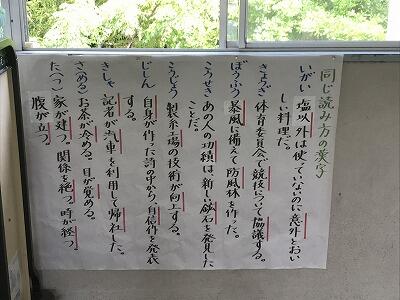 同じ読み方の漢字
いがい 塩以外は使っていないのに意外とおい
しい料理だ。
きょうぎ 体育委員会で競技について協議する。
ぼうふう 暴風に備えて防風林を作った。
こうせき あの人の功績は、新しい鉱石を発見した
ことだ。
こうじょう 製糸工場の技術が向上する。
じしん 自身が作った詩の中から、自信作を発表
する。
きしゃ 記者が汽車を利用して帰社した。
さ(める) お茶が冷める。目が覚める。
た(つ) 家が建つ。関係を絶つ。時が経つ。
腹が立つ。